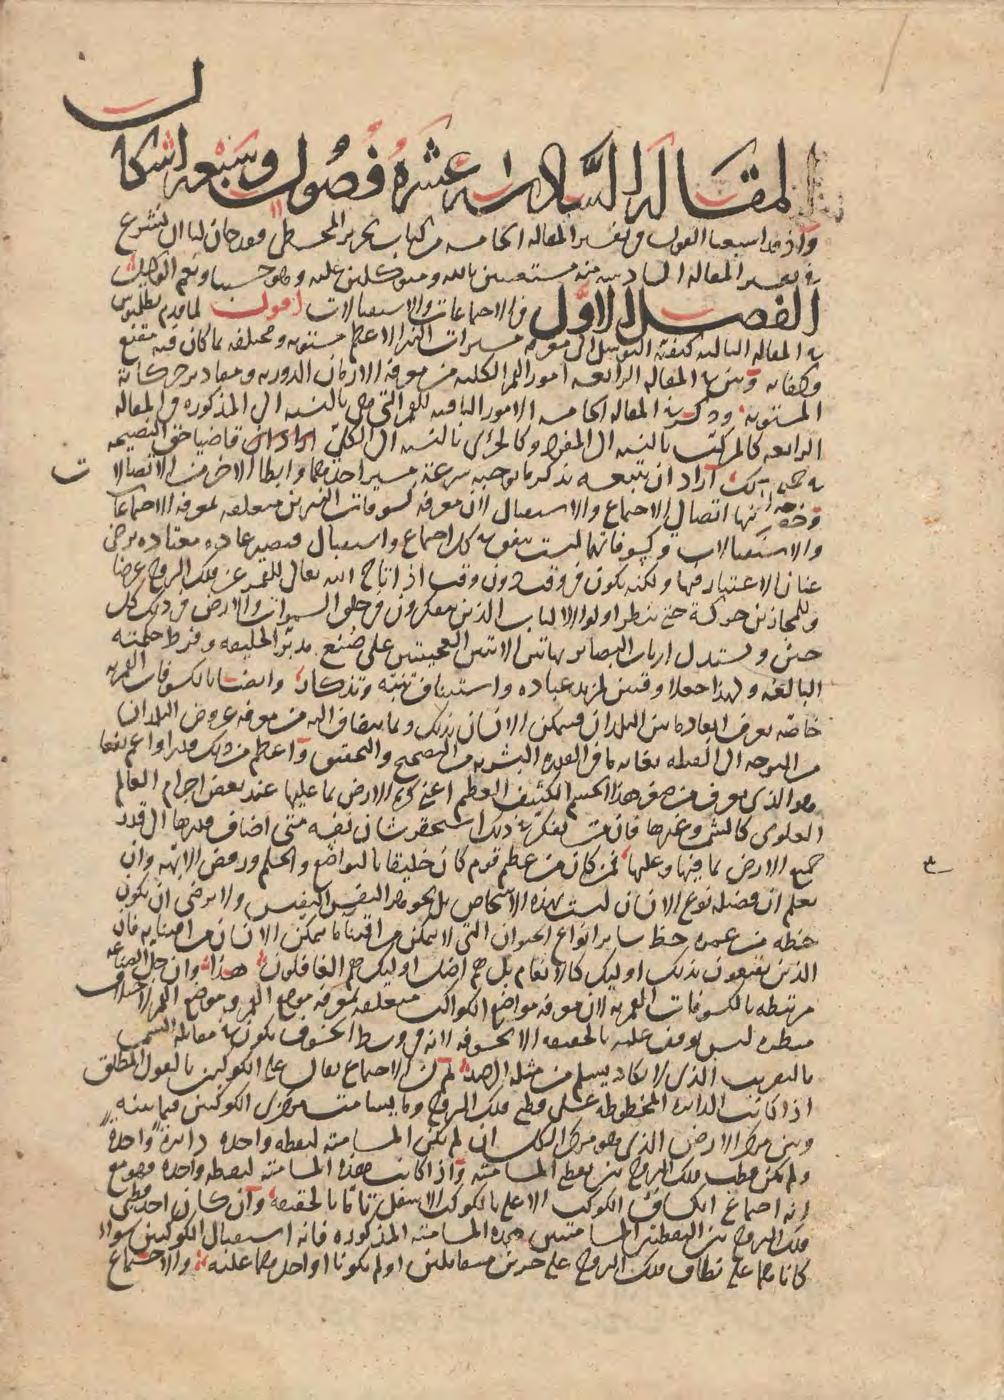 المقالة السادسة عشرة فصول وسبعة اشكال
واذ قد اسبعنا القول في تفسير المقالة الخامسة من كتاب تحرير المجسطي فقد حان لنا ان نشرع
في تفسير المقالة السادسة منه مستعينين بالله ومتوكلين عليه وهو حسبنا ونعم الوكيل
الفصل الاول في الاجتماعات والاستقبالات اقول لما قدم بطلميوس
في المقالة الثالثة كيفية التوصل الى معرفة مسيرات النير الاعظم مستوية ومختلفة بما كان فيه مقنع
وكفاية وبين في المقالة الرابعة امور القمر الكلية من معرفة الازمان الدورية ومقادير حركاته
المستوية وذكر في المقالة الخامسة الامور الباقية للقمر التي هي بالنسبة الى المذكورة في المقالة
الرابعة كالمركب بالنسبة الى المفرد وكالجزئ بالنسبة الى الكلي اراد ان قاضيا حق النصيحة
في ذلك اراد ان يتبعه بذكر ما يوجبه سرعة مسير احدهما وابطا الاخر من الاتصالات
منها اتصال الاجتماع والاستقبال لان معرفة كسوفات النيرين متعلقة بمعرفة الاجتماعات
والاستقبالات وكسوفاتهما ليست تتفق في كل اجتماع واستقبال فتصير عادة معتادة يرخى
عنان الاعتبار فيها ولكنه يكون في وقت دون وقت اذ اتاح الله تعالى للقمر عن فلك البروج عرضا
وللمحاذتين حركة حتى ينظر اولوا الالباب الذين يتفكرون في خلق السموات والارض في ذلك كل
حين ويستدل ارباب البصائر بهاتين الايتين العجيبتين على صنع مدبر الخليقة وفرط حكمته
البالغة ولهذا جعلا وقتين لمزيد عبادة واستيناف تنبه وتذكار وايضا بالكسوفات القمرية
خاصة يعرف ابعاد ما بين البلدان فيتمكن الانسان بذلك وبما ينضاف اليه من معرفة عروض البلدان
من التوجه الى القبلة بغاية ما في القدرة البشرية من التصحيح والتحقيق واعظم من ذلك قدرا واعم نفعا
هو الذي يعرف من صغر هذا الجسم الكثيف العظم اعني كرة الارض بما عليها عند بعض اجرام العالم
العلوي كالشمس وغيرها فان من يفكر في ذلك استحقر شان نفسه متى اضاف قدرها الى قدر
جميع الارض بما فيها وعليها فمن كان من عظم قوم كان خليقا بالتواضع والحلم ورفض الابهة وان
يعلم ان فضيلة نوع الانسان ليست بهذه الاشخاص بل بجوهر النفس النفيس ولا يرضى ان يكون
حظه من عمره حظ سائر انواع الحيوان التي لا يمكن من اقتنا ما يمكن الانسان من اقتنايه فان
الذين يقنعون بذلك اوليك كالانعام بل هم اضل اوليك هم الغافلون هذا وان جل الصناعة
مرتبطة بالكسوفات القمرية لان معرفة مواضع الكواكب متعلقة بمعرفة موضع القمر وموضع القمر لاختلاف
منظره ليس يوقف عليه بالحقيقة الا بخسوفه لانه في وسط الخسوف يكون في مقابلة الشمس
بالتقريب الذي لا يكاد يسلم من مثله الرصد ثم ان الاجتماع يقال على الكوكبين بالقول المطلق
اذا كانت الدائرة المخطوطة على قطبي فلك البروج وما يسامت مركزي الكوكبين فيما بينه
وبين مركز الارض الذي هو مركز الكل ان لم تكن المسامتة لنقطة واحدة دائرة واحدة
ولم يكن قطب فلك البروج بين نقطتي المسامتة واذا كانت هذه المسامتة لنقطة واحدة فهو مع
انه اجتماع انكساف الكوكب الاعلى بالكوكب الاسفل تاما بالحقيقة وان كان احد قطبي
فلك البروج بين النقطتين المسامتتين هذه المسامتة المذكورة فانه استقبال الكوكبين سواء
كانا هما على نطاق فلك البروج على جزئين متقابلين او لم يكونا او احدهما عليه والاجتماع